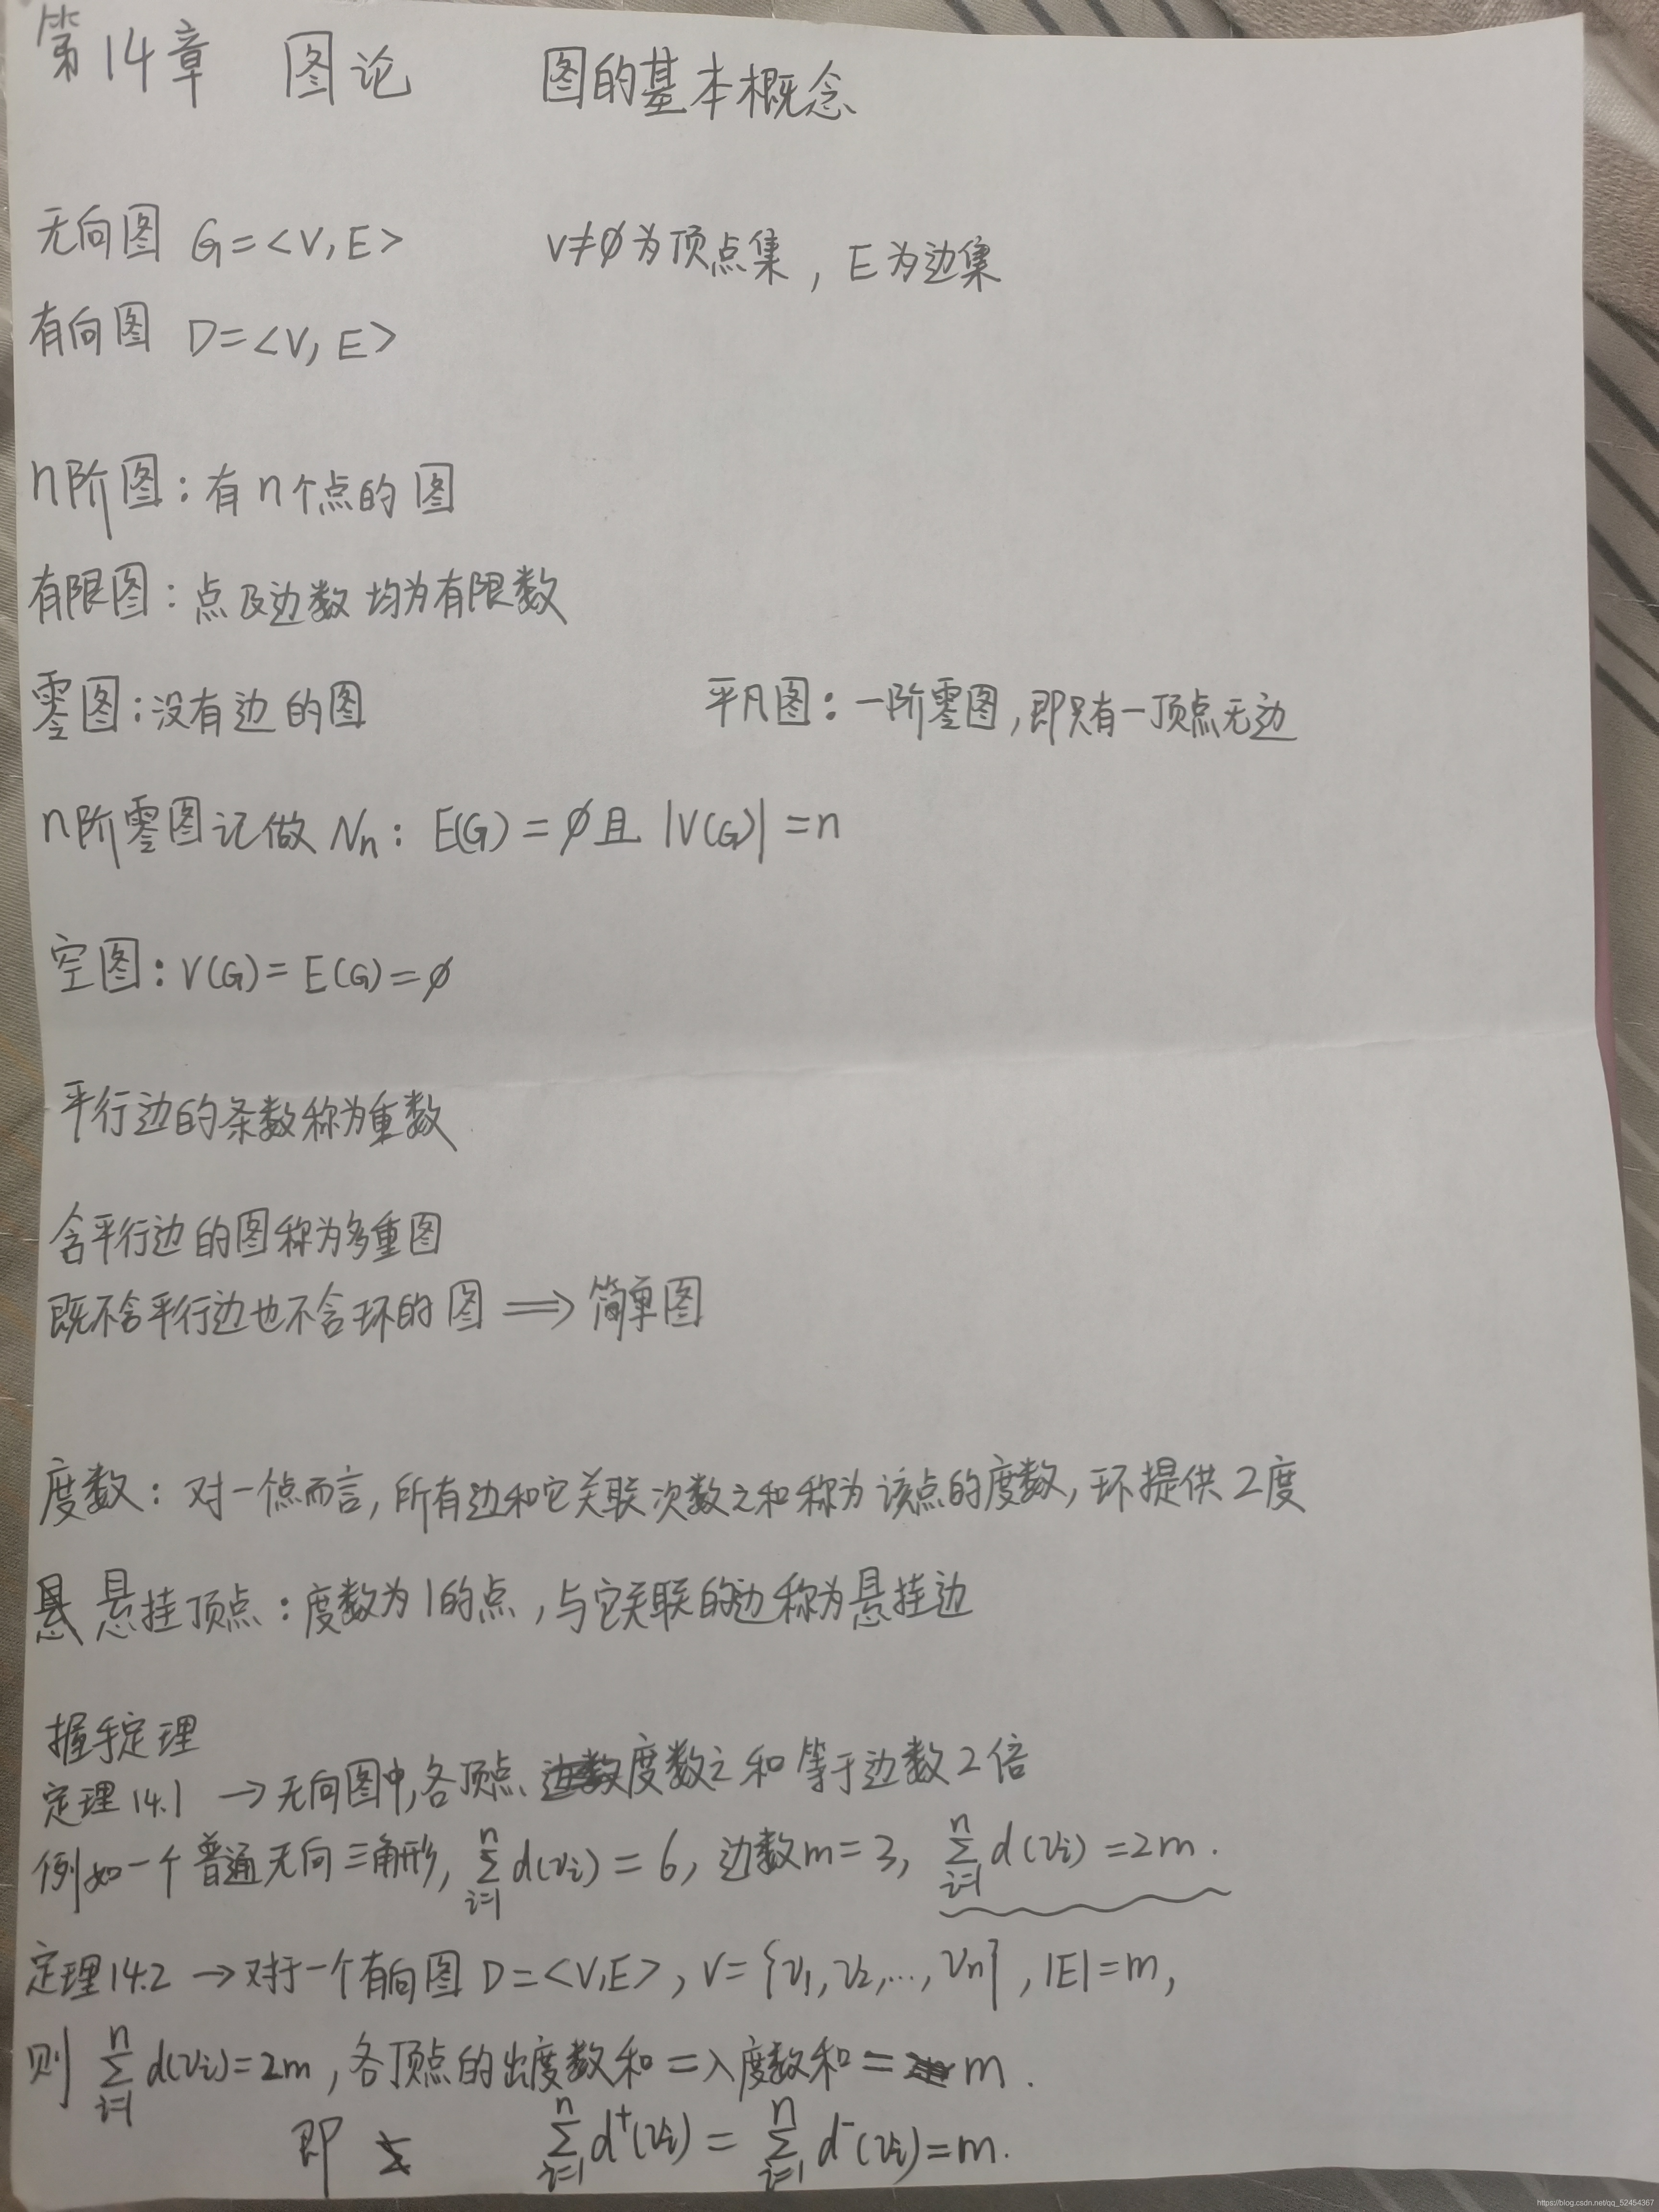 第14章 图论 图的基本概念
无向图 G=<V,E> V≠∅为顶点集，E为边集
有向图 D=<V,E>
n阶图：有n个点的图
有限图：点及边数均为有限数
零图：没有边的图 平凡图：一阶零图，即只有一顶点无边
n阶零图记做 Nn：E(G)=∅且 |V(G)|=n
空图：V(G)=E(G)=∅
平行边的条数称为重数
含平行边的图称为多重图
既不含平行边也不含环的图 ⟹ 简单图
度数：对一个点而言，所有边和它关联次数之和称为该点的度数，环提供2度
悬挂顶点：度数为1的点，与它关联的边称为悬挂边
握手定理
定理14.1 → 无向图中，各顶点度数之和等于边数2倍
例如一个普通无向三角形，∑_{i=1}^{n} d(vi)=6，边数m=3，∑_{i=1}^{n} d(vi)=2m.
定理14.2 → 对于一个有向图 D=<V,E>，V={v1,v2,…,vn}，|E|=m，
则 ∑_{i=1}^{n} d(vi)=2m，各顶点的出度数和=入度数和=m.
即 ∑_{i=1}^{n} d⁺(vi)=∑_{i=1}^{n} d⁻(vi)=m.
https://blog.csdn.net/qq_52454367